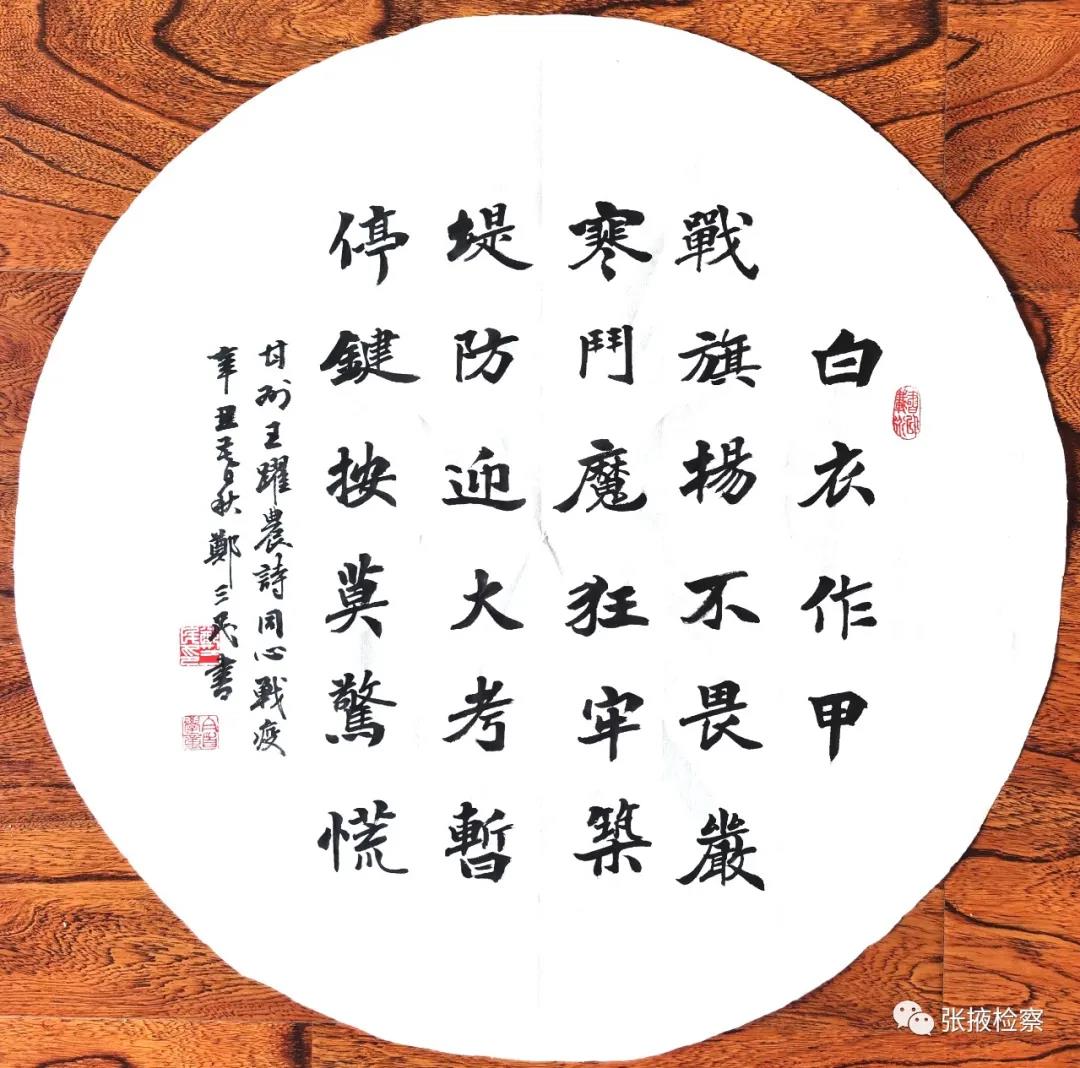 白衣作甲
戰旗揚不畏嚴
寒鬥魔狂牢築
堤防迎大考暫
停鍵按莫驚慌
甘州王躍農詩同心戰疫
辛丑春秋鄭三民書
张掖检察